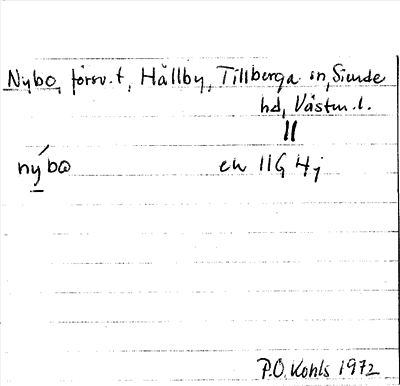 Nybo, försv. t, Hällby, Tillberga sn, Siende
hd, Västm.l.
nýbo ek 11G 4j
P.O. Kohls 1972